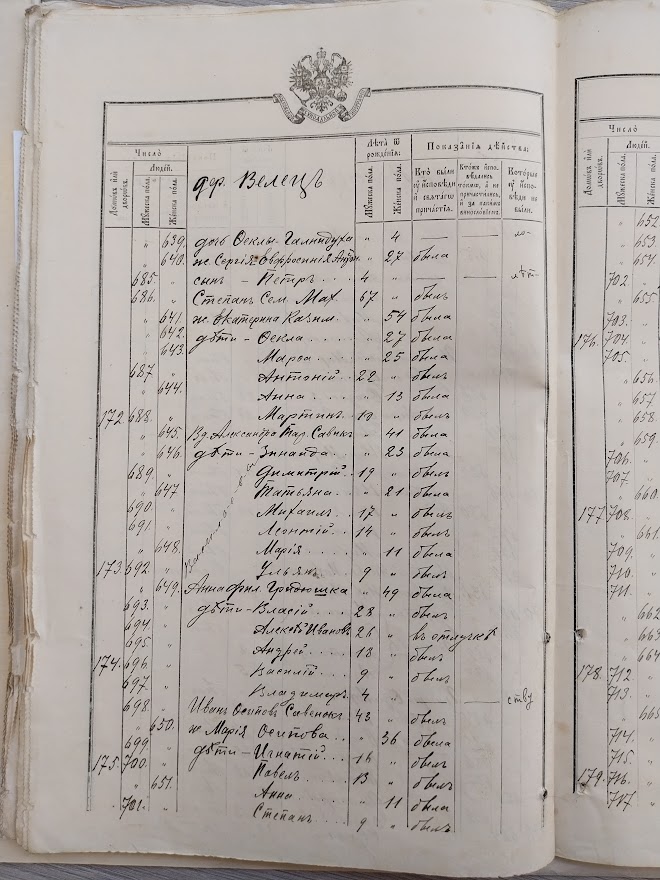 Число
Людей.
Домовъ или дворовъ.
Мꙋжеска пола.
Женска пола.
дер. Велецъ
Лѣта ѿ рожденїѧ:
Мꙋжеска пола.
Женска пола.
Показанїѧ дѣйства:
Кто были ᲂу исповѣди и свѧтагѡ причастїѧ.
Которыи ᲂу исповѣди не были.
" 639. дочь Ѳеклы " 4 —
" 640. ж. Сергія Евфросинія " 27 была
685. " сынъ - Петръ 4 " —
686. " Степанъ Сем. Мах. 67 " былъ
" 641. ж. Екатерина Казим. " 54 была
" 642. дѣти - Ѳекла " 27 была
" 643. Марѳа " 25 была
687 " Антоній 22 " былъ
" 644. Анна " 13 была
172 688. " Мартинъ 10 " былъ
" 645. Вд. Александра 41 была
" 646. дѣти - Зинаида " 23 была
689. " Димитрій 19 " былъ
" 647 Татьяна " 21 была
690. " Михаилъ 17 " былъ
691. " Леонтій 14 " былъ
" 648. Марія " 11 была
173 692. " Ульянъ 9 " былъ
" 649. Анна Фил. " 49 была
693. " дѣти - Власій 28 " былъ
694. " Алексѣй Ивановъ 26 " въ отлучкѣ
695. " Андрей 18 " былъ
174. 696. " Василій 9 " былъ
697. " Владимиръ 4 " —
698. " Иванъ Осиповъ Савенокъ 43 " былъ
" 650. ж. Марія Осипова " 36 была
699. " дѣти - Игнатій 16 " былъ
175. 700. " Павелъ 13 " былъ
" 651. Анна " 11 была
701. " Степанъ 9 " былъ
Число
Домовъ или дворовъ.
Мꙋжеска пола.
652
" 653.
" 654.
702. "
" 655.
703.
176. 704.
705.
" 656.
" 657.
" 658.
" 659.
706.
707.
" 660.
177 708.
" 661.
709.
710.
711.
" 662
" 663
" 664
178. 712
713.
714.
715.
179. 716.
717.